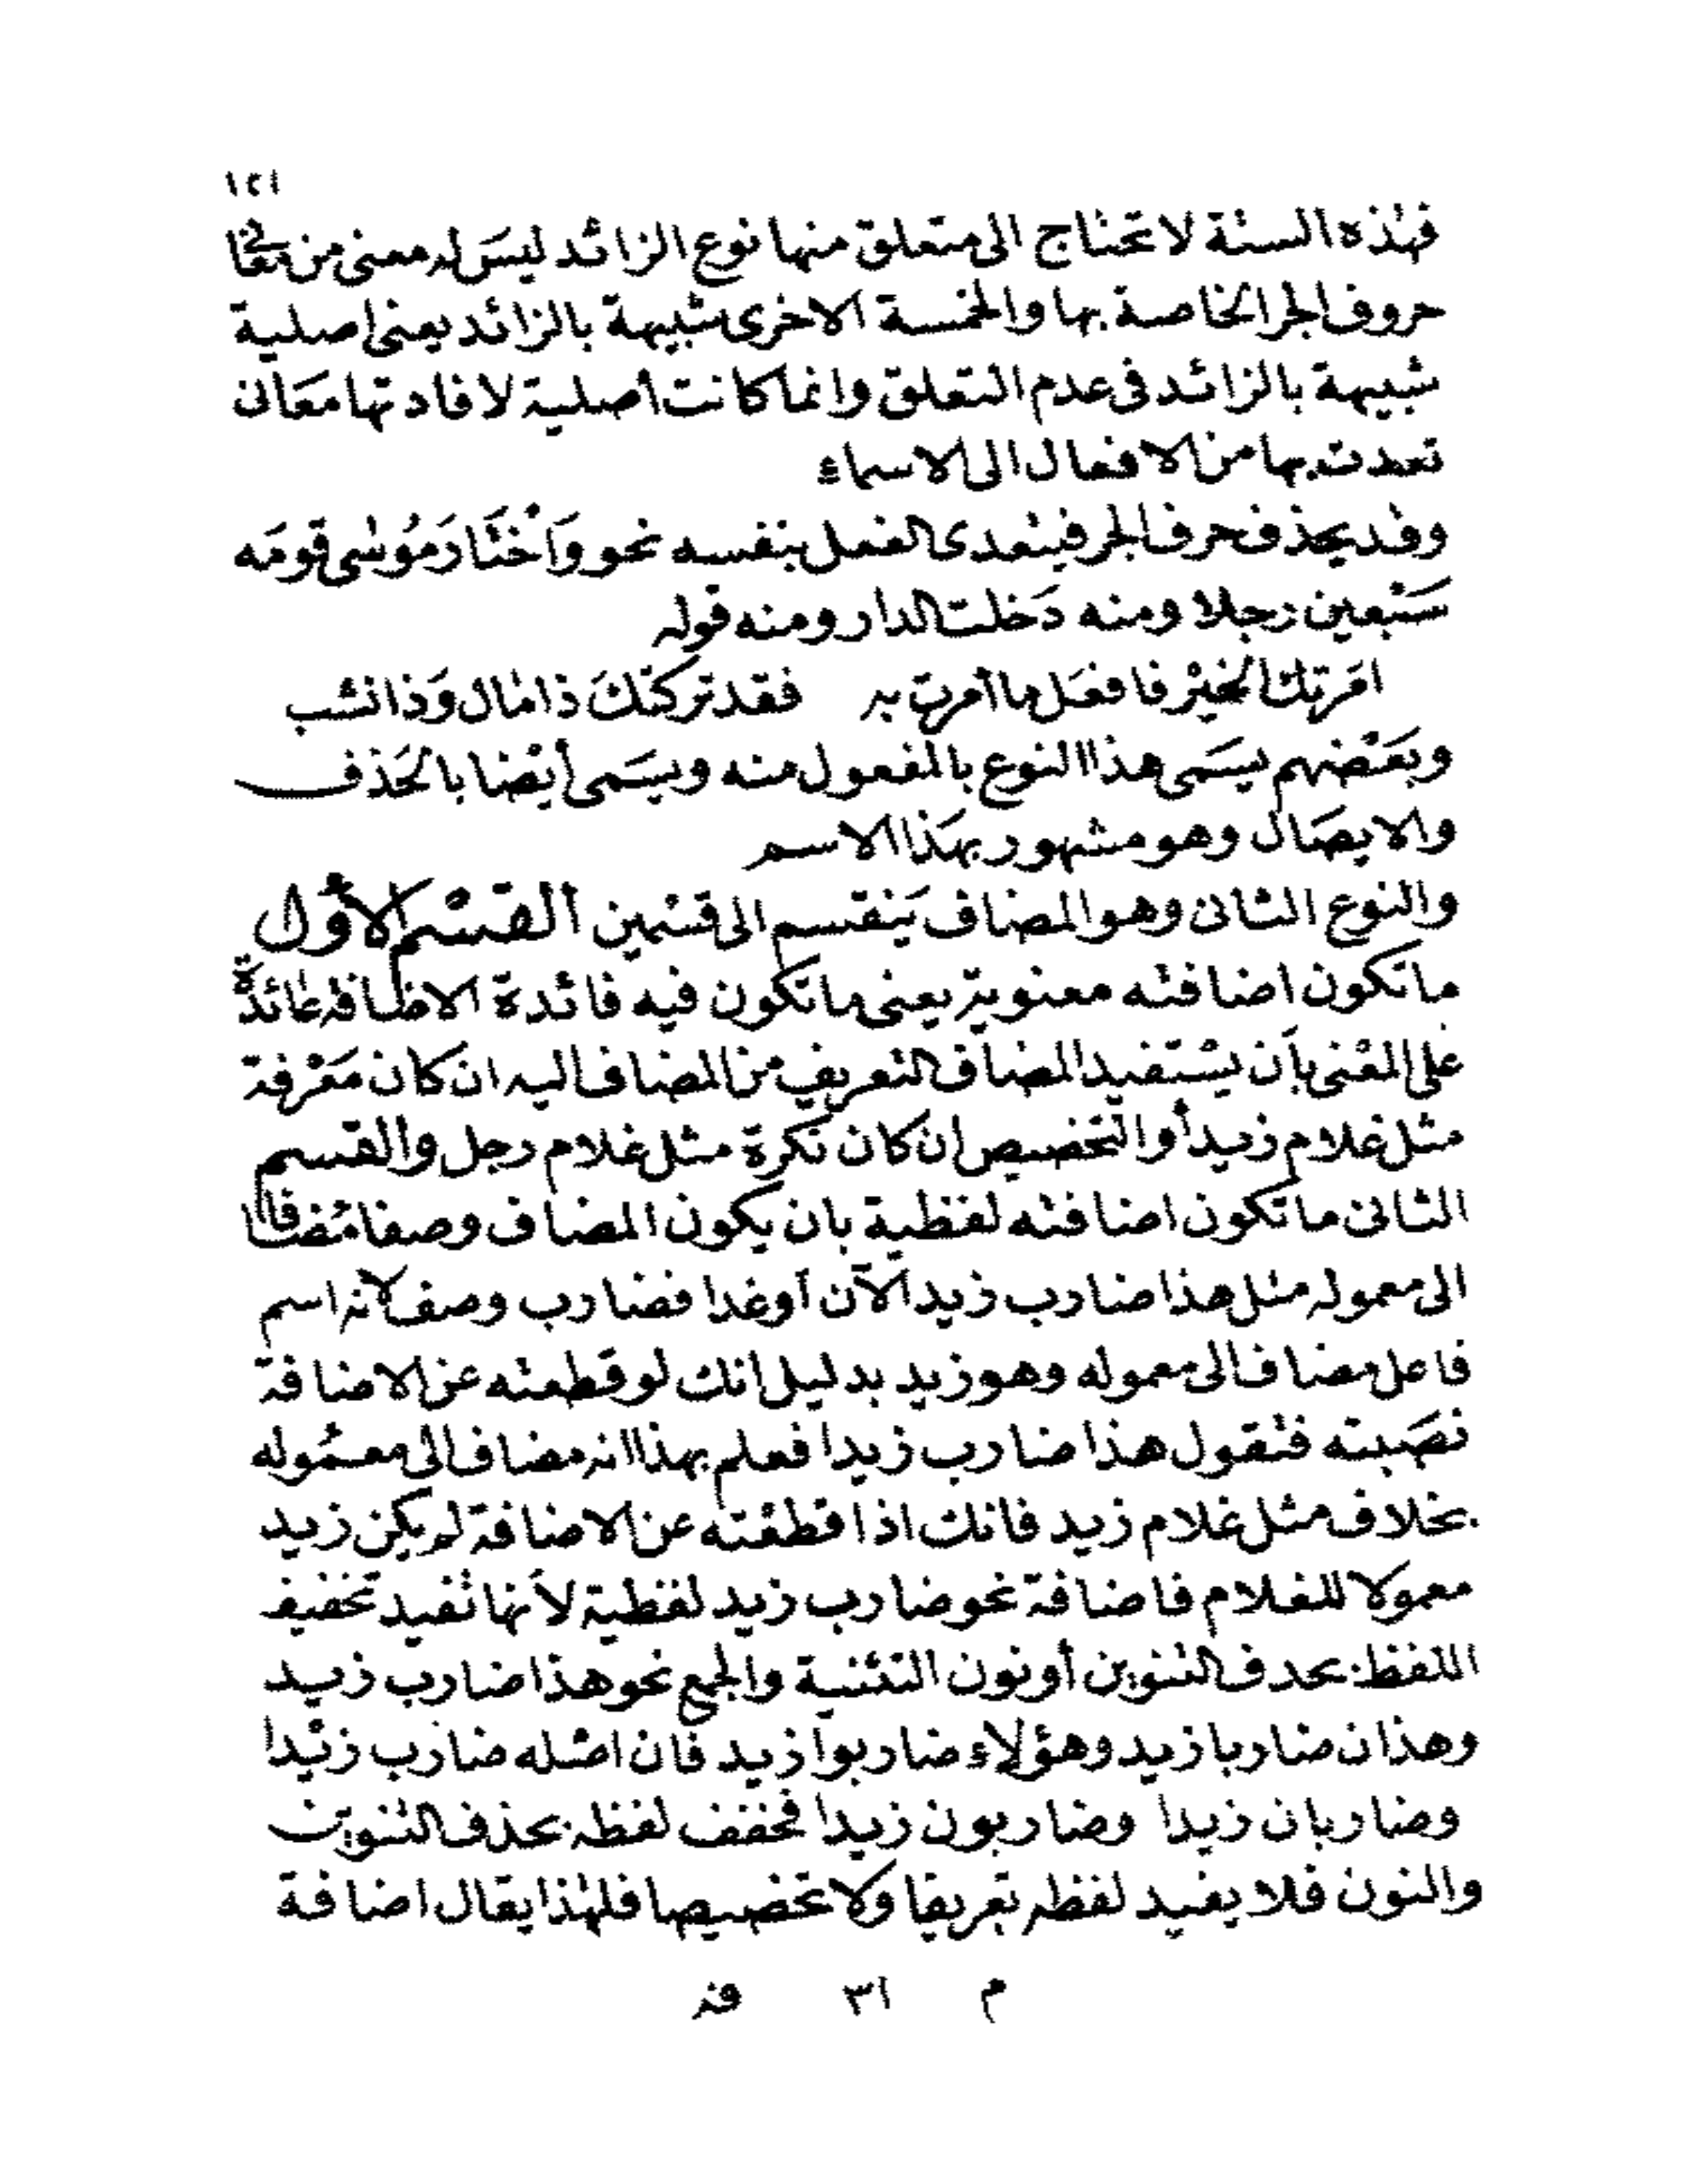 ١٢١
فهذه الستة لا تحتاج الى متعلق منها نوع الزائد ليس له معنى من معانى
حروف الجر الخاصة بها والخمسة الاخرى شبيهة بالزائد يعنى اصلية
شبيهة بالزائد فى عدم التعلق وانما كانت أصلية لافادتها معان
تعدت بها من الافعال الى الاسماء
وقد يحذف حرف الجر فيتعدى الفعل بنفسه نحو وَاخْتَارَ مُوسٰى قومَه
سَبْعين رجلا ومنه دَخلت الدار ومنه قوله
امَرتك الخيْر فافعَل ما أمرت به فقد تركتكَ ذا مال وَذا نشب
وبَعْضهم يسَمى هذا النوع بالمفعول منه ويسَمى أيْضا بالحَذف
والايصَال وهو مشهور بهَذا الاسم
والنوع الثانى وهو المضاف يَنقسم الى قسْمين القسْم الأول
ما تكون اضافته معنوية يعنى ما تكون فيه فائدة الاضافة عائدة
على المعْنى بأن يسْتفيد المضاف التعريف من المضاف اليه ان كان مَعْرفة
مثل غلام زيد أو التخصيص ان كان نكرة مثل غلام رجل والقسم
الثانى ما تكون اضافته لفظية بان يكون المضاف وصفا مُضافا
الى معموله مثل هذا ضارب زيد الآن أو غدا فضارب وصف لأنه اسم
فاعل مضاف الى معموله وهو زيد بدليل انك لو قطعته عن الاضافة
نصَبته فتقول هذا ضارب زيدا فعلم بهذا انه مضاف الى معْموله
بخلاف مثل غلام زيد فانك اذا قطعْته عن الاضافة لم يكن زيد
معمولا للغلام فاضافة نحو ضارب زيد لفظية لأنها تفيد تخفيف
اللفظ بحدف التنوين أو نون التثنية والجمع نحو هذا ضارب زيد
وهذان ضاربا زيد وهؤلاء ضاربوا زيد فان اصْله ضارب زيْدا
وضاربان زيدا وضاربون زيدا فخفف لفظه بحذف التنوين
والنون فلا يفيد لفظه تعريفا ولا تخصيصا فلهٰذا يقال اضافة
م ٣١ فذ